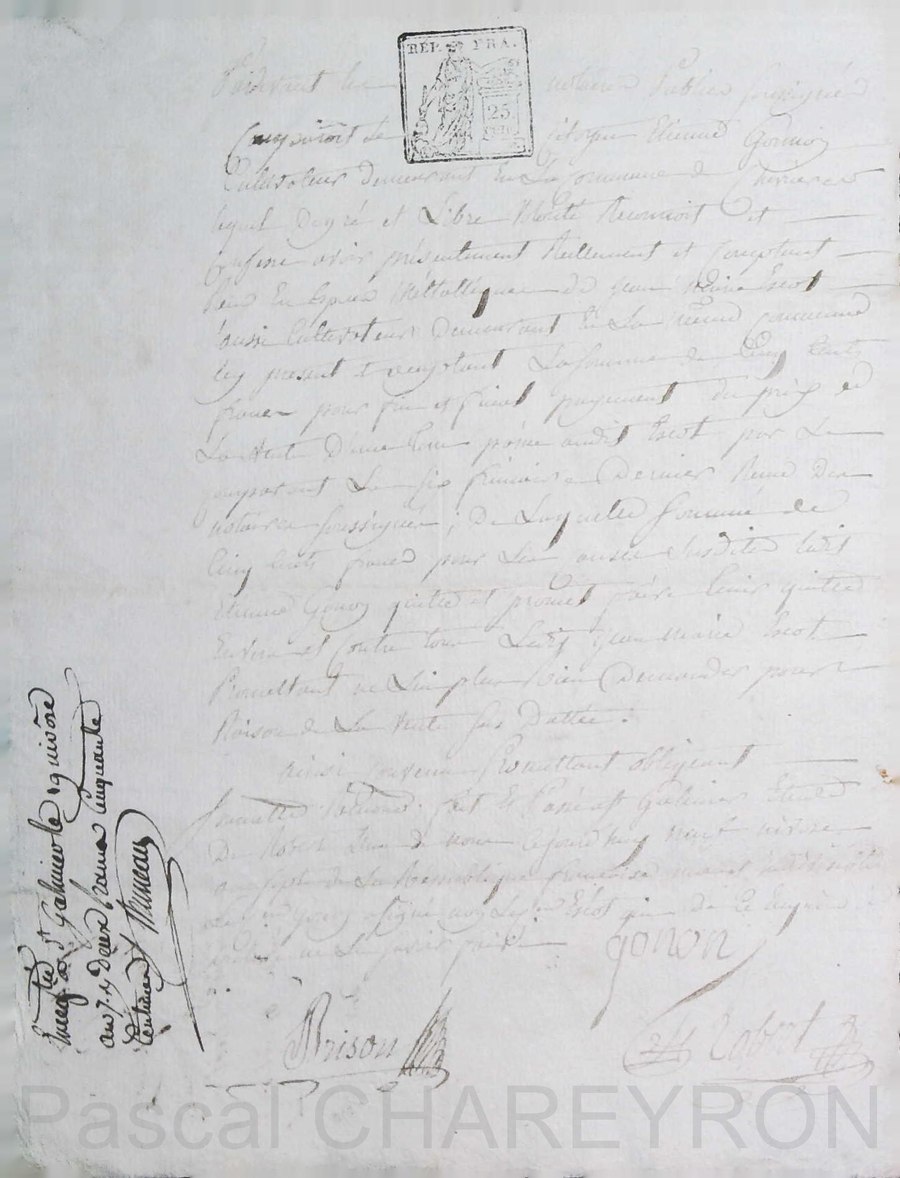 RÉP. FRA.
25
Pardevant les notaires Publics soussignés
Comparoit le citoyen Etienne Gonon
Cultivateur demeurant En La Commune de
lequel De gré et Libre volonté Reconnoit et
Confesse avoir présentement Réellement et Comptant
Reçu En Espèces Métalliques De jean Marie Escot
aussi Cultivateur demeurant En La même Commune
icy present et acceptant La somme de Cinq Cents
francs pour fin et final payement Du prix de
La vente D'une audit Escot par Le
Comparant Le six frimaire Dernier Reçue Des
notaires soussignés, De Laquelle somme de
Cinq Cents francs pour Les causes susdites Ledit
Etienne Gonon quitte et promet faire tenir quitte
Envers et Contre tous Ledit jean marie Escot
Promettant ne Luy plus Rien Demander pour
Raison de La vente sus Dattée.
ainsi Convenu Promettant obligeant
fait Et Passé a St Galmier Etude
De Robert L'un de nous Cejourdhuy neuf nivose
an sept de La Republique française une et indivisible
Le Gonon a signé non Led. Escot qui De Ce enquis
Gonon
Brison
Robert
Enregistré a St Galmier le quinze nivose
an 7. Reçu deux francs cinquante
centimes
Pascal CHAREYRON